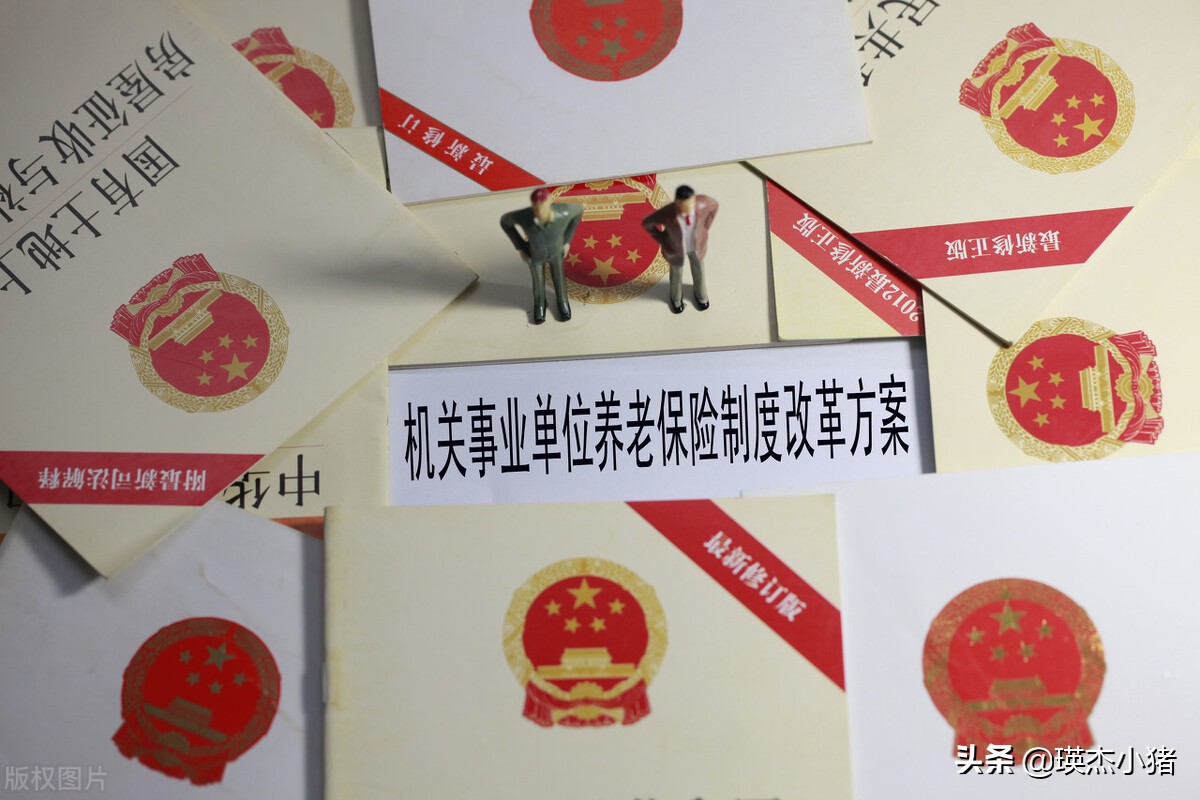 房屋征收与补
国有土地上
附最新司法解释
中华
最新修订
2012最新修正版
最新修正版
民共
机关事业单位养老保险制度改革方案
最新修订版
版权图片
头条 @瑛杰小猪